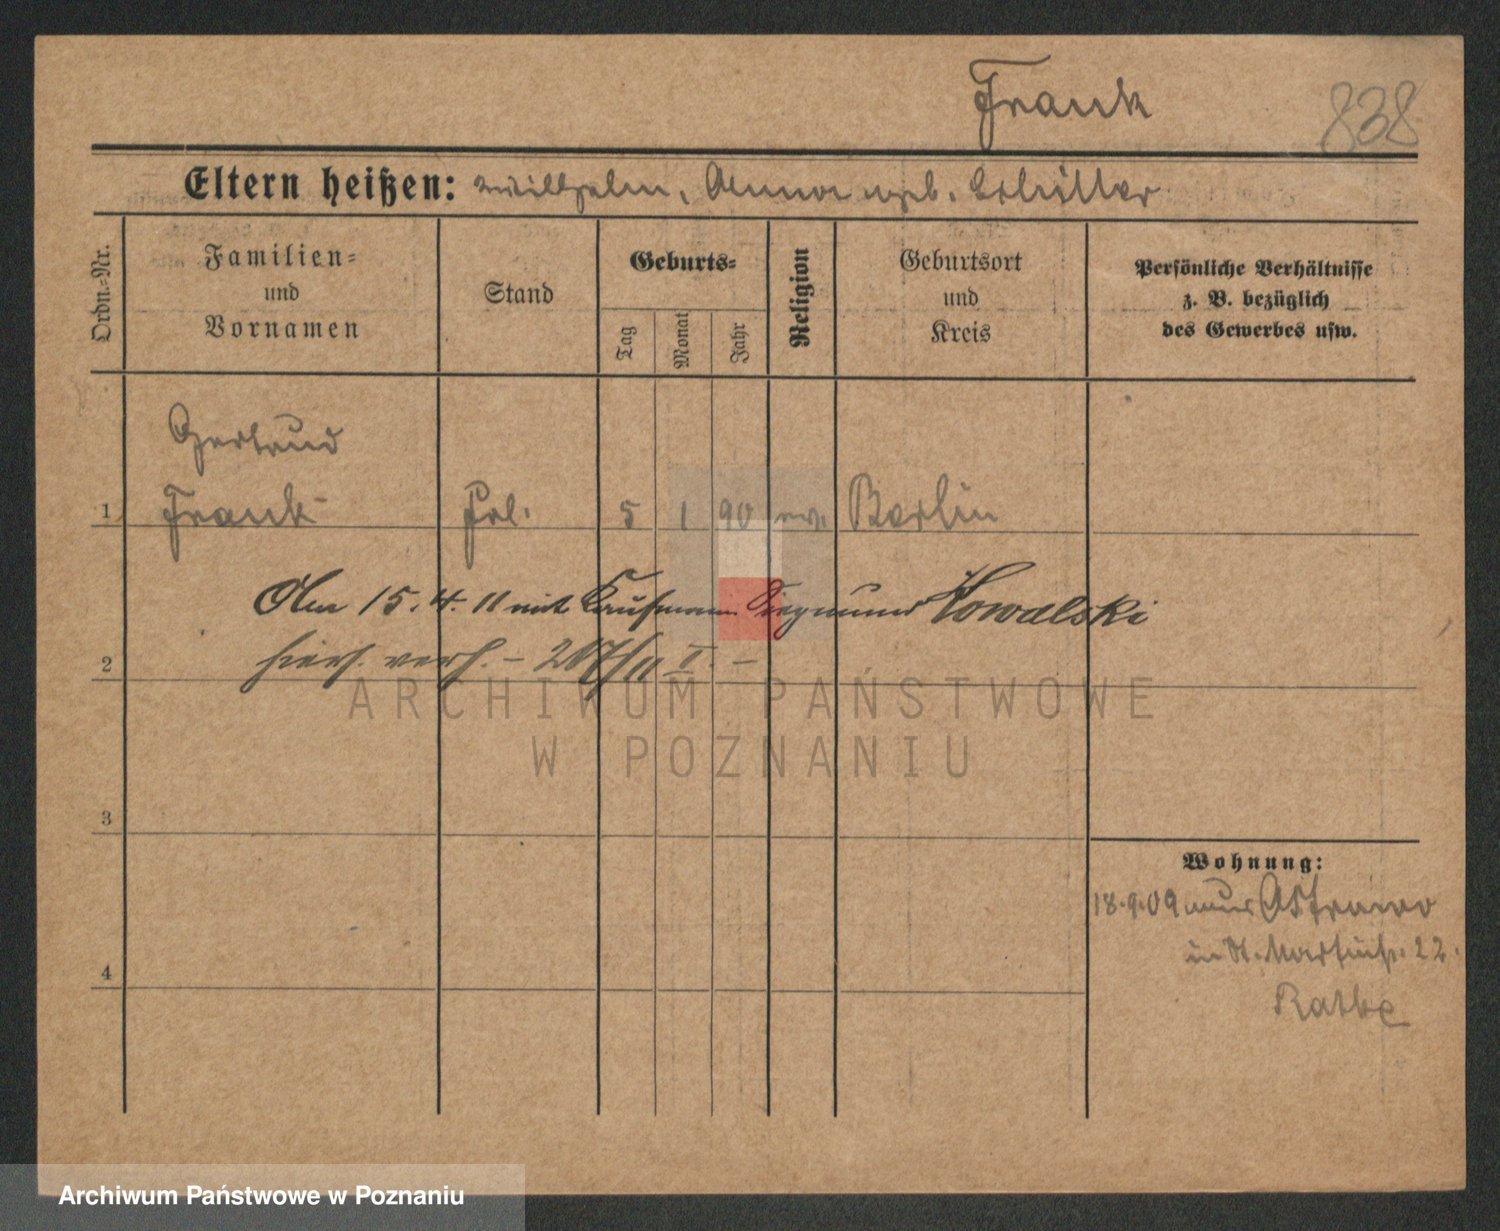 Frank
838
Eltern heißen: Wilhelm, Anna geb. Schiller
Ordn.-Nr.
Familien-
und
Vornamen
Stand
Geburts-
Tag
Monat
Jahr
Religion
Geburtsort
und
Kreis
Persönliche Verhältnisse
z. B. bezüglich
des Gewerbes usw.
Gertrud
1 Frank Frl. 5 1 90 ev. Berlin
Am 15.4.11 mit Kaufmann Siegmund Kowalski
2 hies. verh. – 207/11 II. –
ARCHIWUM PAŃSTWOWE
W POZNANIU
3
Wohnung:
18.9.09 aus Ostrowo
in St. Martinstr. 22.
4
Archiwum Państwowe w Poznaniu